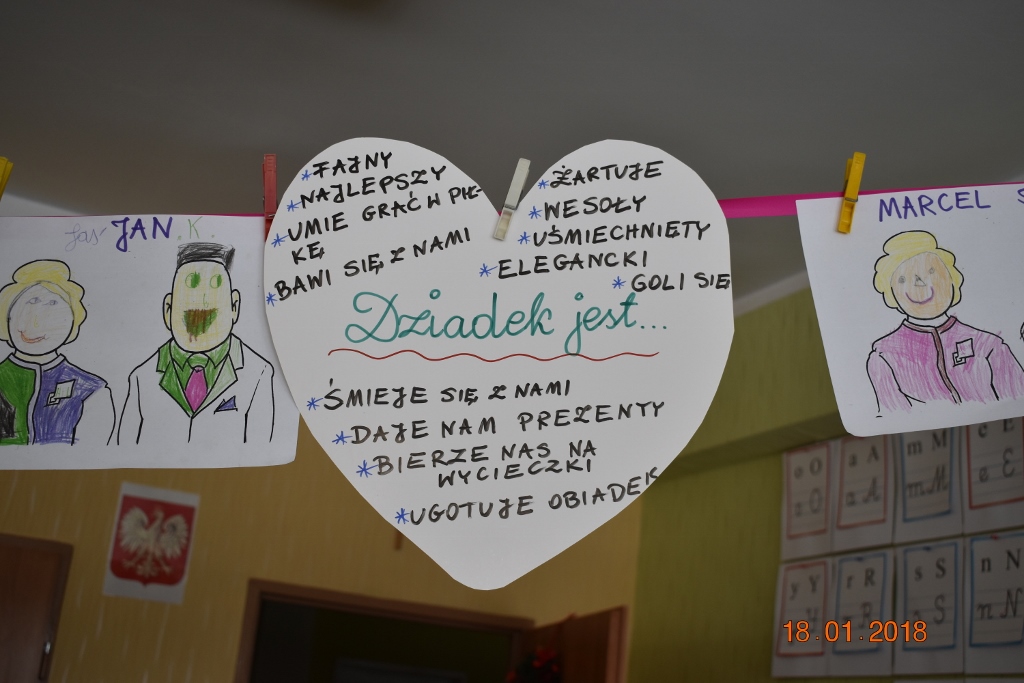 Jaś JAN.K.
* FAJNY
* NAJLEPSZY
* UMIE GRAĆ W PIŁ-
KĘ
* BAWI SIĘ Z NAMI
* ŻARTUJE
* WESOŁY
* UŚMIECHNIETY
* ELEGANCKI
* GOLI SIĘ
Dziadek jest...
* ŚMIEJE SIĘ Z NAMI
* DAJE NAM PREZENTY
* BIERZE NAS NA
WYCIECZKI
* UGOTUJE OBIADEK
MARCEL S
o O
a A
a A
m M
m M
e E
e E
y Y
r R
r R
s S
s S
n N
n N
18.01.2018